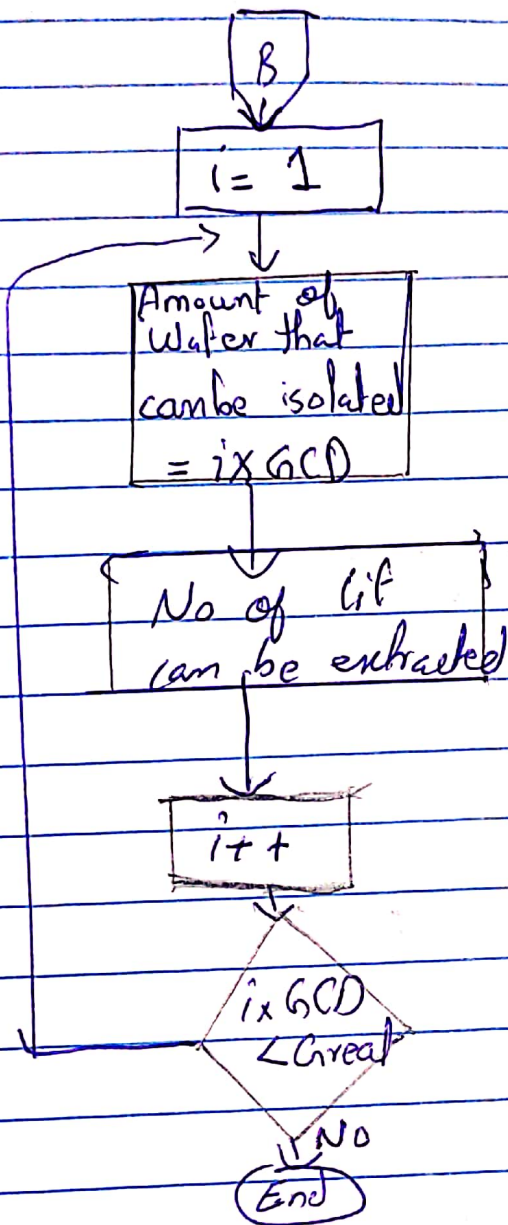 B
i = 1
Amount of
Water that
can be isolated
= i x GCD
No of lit
can be extracted
i++
i x GCD
< Great
No
End